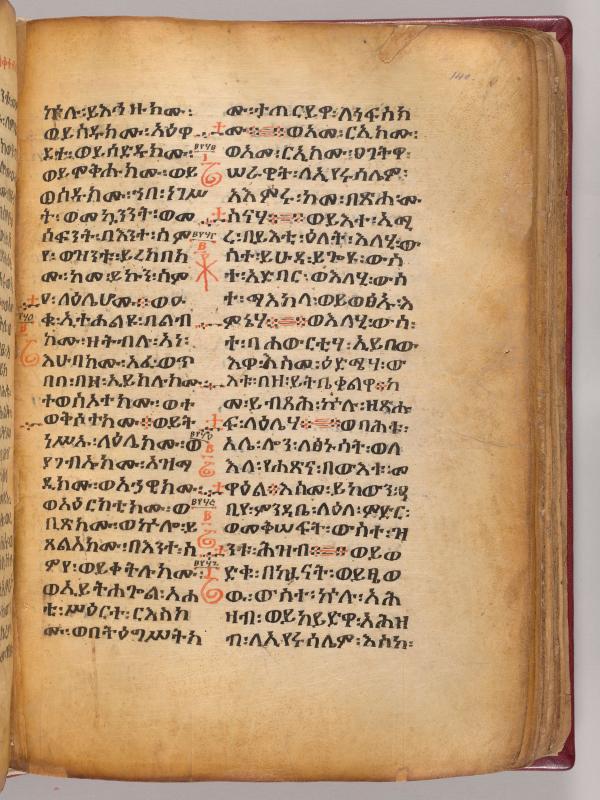 ኵሉ፡ይእኅዙክሙ፡
ወይስዱክሙ፡አዕዋ
ዴቶ፡ወይሰድዱክሙ፡
ወይሞቅሑክሙ፡ወይ
ወስዱክሙ፡ኀበ፡ነገሥ
ት፡ወመኳንንት፡ወመ
ሳፍንት፡በእንተ፡ስም
የ፡ወዝንቱ፡ይረክበክ
ሙ፡ከመ፡ይኩን፡ስም
ዐ፡ላዕሌሆሙ። ወዑ
ቁ፡ኢተሐልዩ፡በልብ
ክሙ፡ዘትብሉ፡አነ፡
እሁበክሙ፡አፈ፡ወጥ
በበ፡በዘ፡ኢይክሉክሙ፡
ተወስኦተክሙ፡ወተ
ወቅሶተክሙ። ወይት
ነሥኡ፡ላዕሌክሙ፡ወ
ያገብኡክሙ፡አዝማ
ዲክሙ፡ወአኀዊክሙ፡
ወአዕርክቲክሙ፡ወ
ቢጽክሙ፡ወኵሎ፡ይ
ጸልአክሙ፡በእንተ፡ስ
ምየ፡ወይቀትሉክሙ፡
ወኢይትሐጐል፡አሐ
ቲ፡ሥዕርተ፡ርእስክ
ሙ፡ወበትዕግሥትክ
ሙ፡ተጠርይዋ፡ለነፍስክ
ሙ። ወአመ፡ርኢክሙ፡
ወአመ፡ርኢክሙ፡ዐገትዋ፡
ሠራዊት፡ለኢየሩሳሌም፡
አእምሩ፡ከመ፡በጽሐ፡ሙ
ስናሃ። ወይእተ፡አሚ
ረ፡በይእቲ፡ዕለት፡እለሂ፡ው
ስተ፡ይሁዳ፡ይጕየዩ፡ውስ
ተ፡አድባር፡ወእለሂ፡ውስ
ተ፡ማእከላ፡ወይወፅኡ፡እ
ምኔሃ። ወእለሂ፡ውስ፡
ተ፡በሐውርቲሃ፡ኢይባው
እዋ፡እስመ፡ዕድሜሃ፡ው
እቱ፡በዘ፡ይትቤቀልዋ፡ከ
መ፡ይብጻሕ፡ኵሉ፡ዘጽሑ
ፍ፡ላዕሌሃ። ወባሕቱ፡
አሌ፡ሎን፡ለፅኑሳት፡ወለ
እለ፡የሐፅና፡በውእቱ፡መ
ዋዕል። እስመ፡ይከውን፡ዐ
ቢይ፡ምንዳቤ፡ላዕለ፡ምድር፡
ወመቀሠፍት፡ውስተ፡ዝ
ንቱ፡ሕዝብ። ወይወ
ድቁ፡በኲናት፡ወይፄወ
ዉ፡ውስተ፡ኵሉ፡አሕ
ዛብ፡ወይከይድዋ፡አሕዛ
ብ፡ለኢየሩሳሌም፡እስከ፡